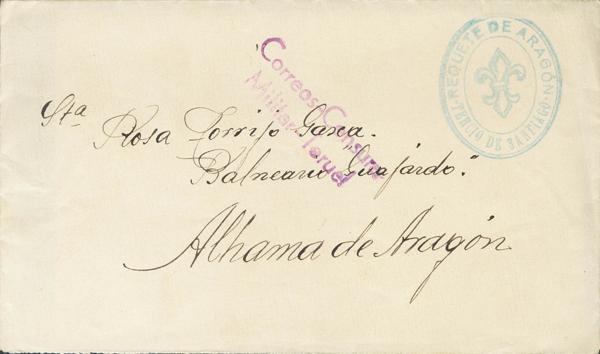 REQUETE DE ARAGÓN
TERCIO DE SANTIAGO
Correos Censura
Militar Teruel
Sta
Rosa Torrijo Garcea.
Balneario "Guajardo".
Alhama de Aragón